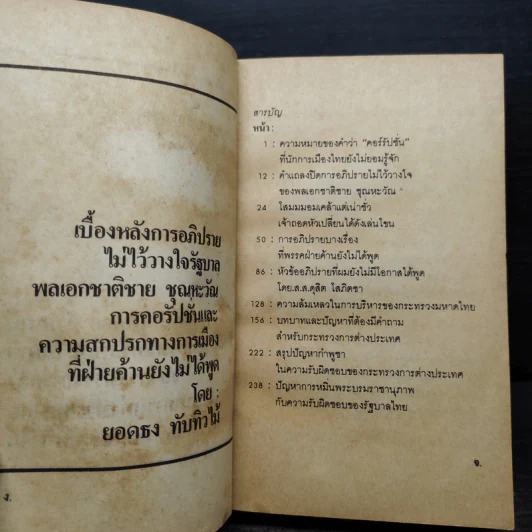 เบื้องหลังการอภิปราย
ไม่ไว้วางใจรัฐบาล
พลเอกชาติชาย ชุณหะวัณ
การคอรัปชั่นและ
ความสกปรกทางการเมือง
ที่ฝ่ายค้านยังไม่ได้พูด
โดย :
ยอดธง ทับทิวไม้
ง.
สารบัญ
หน้า :
1 : ความหมายของคำว่า "คอร์รัปชั่น"
ที่นักการเมืองไทยยังไม่ยอมรู้จัก
12 : คำแถลงปิดการอภิปรายไม่ไว้วางใจ
ของพลเอกชาติชาย ชุณหะวัณ
24 : โสมมมอมเคล้าแต่เน่าชั่ว
เจ้าถอดหัวเปลี่ยนได้ดังเล่นโขน
50 : การอภิปรายบางเรื่อง
ที่พรรคฝ่ายค้านยังไม่ได้พูด
86 : หัวข้ออภิปรายที่ผมยังไม่มีโอกาสได้พูด
โดย.ส.ส.ดุสิต โสภิตชา
128 : ความล้มเหลวในการบริหารของกระทรวงมหาดไทย
156 : บทบาทและปัญหาที่ต้องมีคำถาม
สำหรับกระทรวงการต่างประเทศ
222 : สรุปปัญหากำพูชา
ในความรับผิดชอบของกระทรวงการต่างประเทศ
238 : ปัญหาการหมิ่นพระบรมราชานุภาพ
กับความรับผิดชอบของรัฐบาลไทย
จ.